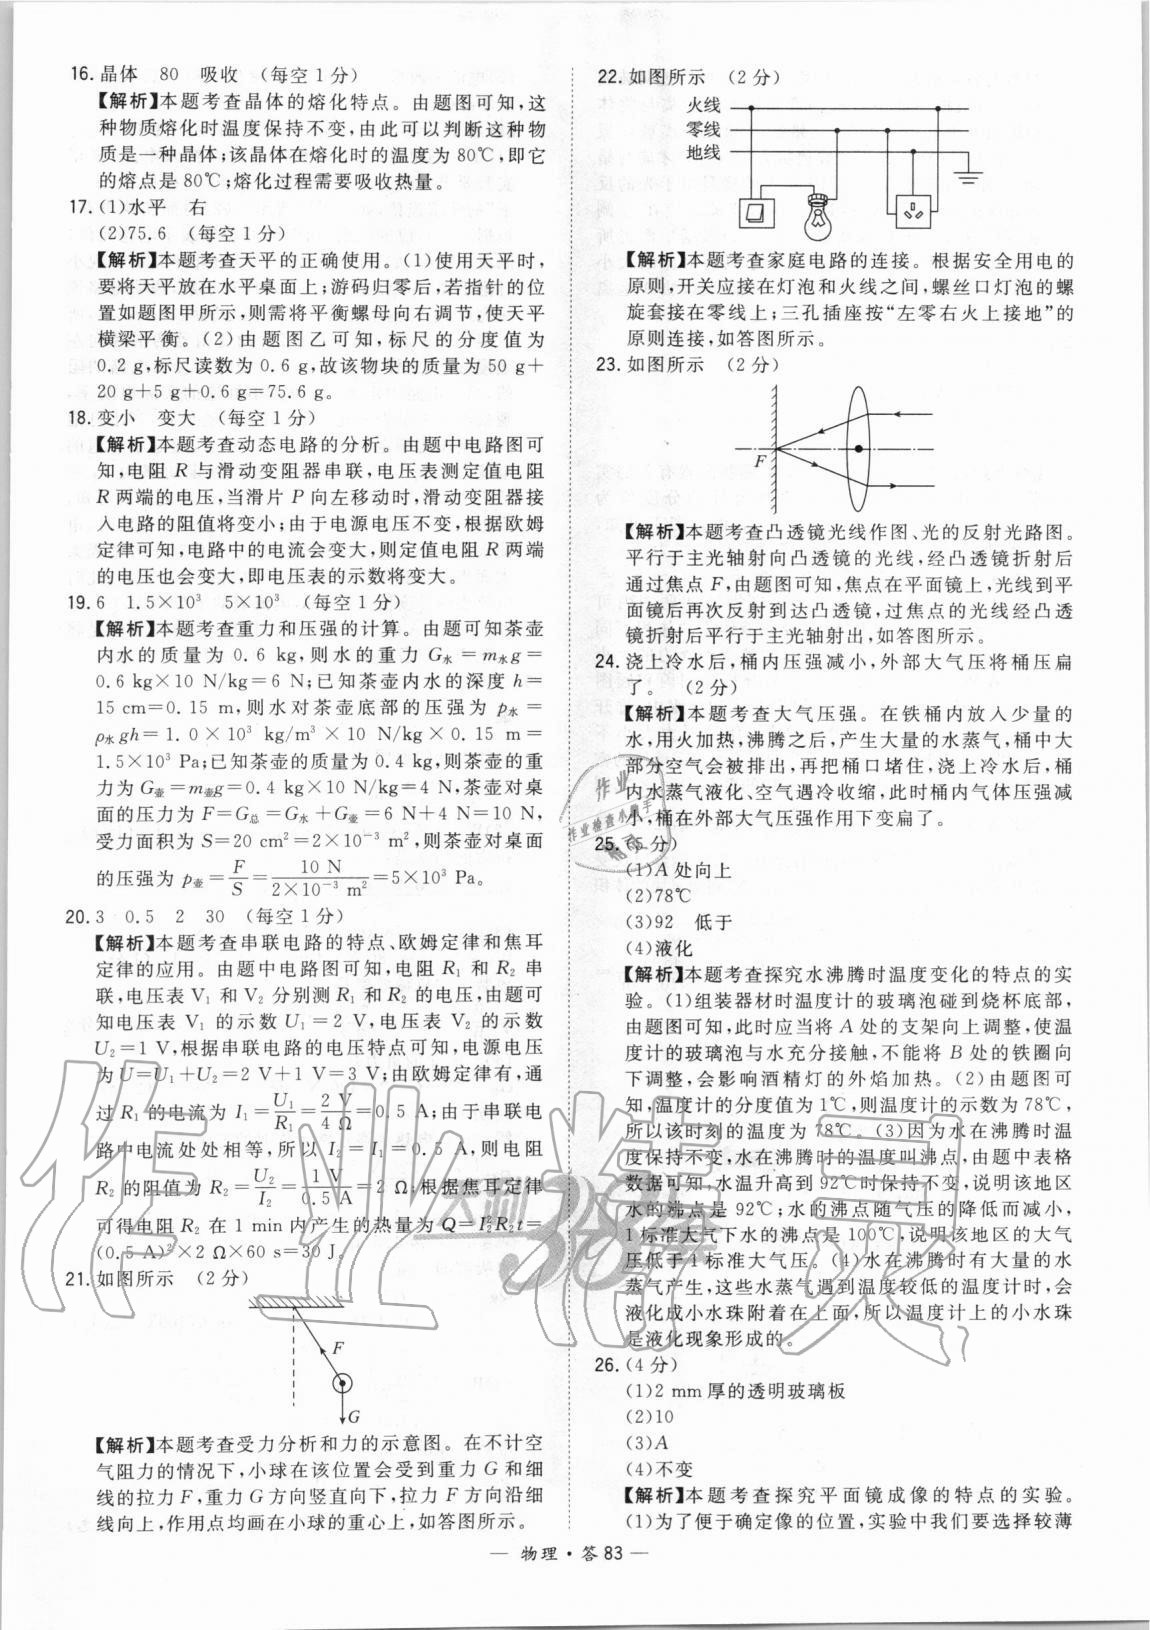 16.晶体　80　吸收　(每空1分)
【解析】本题考查晶体的熔化特点。由题图可知,这
种物质熔化时温度保持不变,由此可以判断这种物
质是一种晶体;该晶体在熔化时的温度为80℃,即它
的熔点是80℃;熔化过程需要吸收热量。
17.(1)水平　右
(2)75.6　(每空1分)
【解析】本题考查天平的正确使用。(1)使用天平时,
要将天平放在水平桌面上;游码归零后,若指针的位
置如题图甲所示,则需将平衡螺母向右调节,使天平
横梁平衡。(2)由题图乙可知,标尺的分度值为
0.2 g,标尺读数为0.6 g,故该物块的质量为50 g+
20 g+5 g+0.6 g=75.6 g。
18.变小　变大　(每空1分)
【解析】本题考查动态电路的分析。由题中电路图可
知,电阻R与滑动变阻器串联,电压表测定值电阻
R两端的电压,当滑片P向左移动时,滑动变阻器接
入电路的阻值将变小;由于电源电压不变,根据欧姆
定律可知,电路中的电流会变大,则定值电阻R两端
的电压也会变大,即电压表的示数将变大。
19.6　1.5×10³　5×10³　(每空1分)
【解析】本题考查重力和压强的计算。由题可知茶壶
内水的质量为0.6 kg,则水的重力G水=m水g=
0.6 kg×10 N/kg=6 N;已知茶壶内水的深度h=
15 cm=0.15 m,则水对茶壶底部的压强为p水=
ρ水gh=1.0×10³ kg/m³×10 N/kg×0.15 m=
1.5×10³ Pa;已知茶壶的质量为0.4 kg,则茶壶的重
力为G壶=m壶g=0.4 kg×10 N/kg=4 N,茶壶对桌
面的压力为F=G总=G水+G壶=6 N+4 N=10 N,
受力面积为S=20 cm²=2×10⁻³ m²,则茶壶对桌面
的压强为p壶=F/S=10 N/(2×10⁻³ m²)=5×10³ Pa。
20.3　0.5　2　30　(每空1分)
【解析】本题考查串联电路的特点、欧姆定律和焦耳
定律的应用。由题中电路图可知,电阻R₁和R₂串
联,电压表V₁和V₂分别测R₁和R₂的电压,由题可
知电压表V₁的示数U₁=2 V,电压表V₂的示数
U₂=1 V,根据串联电路的电压特点可知,电源电压
为U=U₁+U₂=2 V+1 V=3 V;由欧姆定律有,通
过R₁的电流为I₁=U₁/R₁=2 V/4 Ω=0.5 A;由于串联电
路中电流处处相等,所以I₂=I₁=0.5 A,则电阻
R₂的阻值为R₂=U₂/I₂=1 V/0.5 A=2 Ω;根据焦耳定律
可得电阻R₂在1 min内产生的热量为Q=I₂²R₂t=
(0.5 A)²×2 Ω×60 s=30 J。
21.如图所示　(2分)
F
G
【解析】本题考查受力分析和力的示意图。在不计空
气阻力的情况下,小球在该位置会受到重力G和细
线的拉力F,重力G方向竖直向下,拉力F方向沿细
线向上,作用点均画在小球的重心上,如答图所示。
22.如图所示　(2分)
火线
零线
地线
【解析】本题考查家庭电路的连接。根据安全用电的
原则,开关应接在灯泡和火线之间,螺丝口灯泡的螺
旋套接在零线上;三孔插座按“左零右火上接地”的
原则连接,如答图所示。
23.如图所示　(2分)
F
【解析】本题考查凸透镜光线作图、光的反射光路图。
平行于主光轴射向凸透镜的光线,经凸透镜折射后
通过焦点F,由题图可知,焦点在平面镜上,光线到平
面镜后再次反射到达凸透镜,过焦点的光线经凸透
镜折射后平行于主光轴射出,如答图所示。
24.浇上冷水后,桶内压强减小,外部大气压将桶压扁
了。　(2分)
【解析】本题考查大气压强。在铁桶内放入少量的
水,用火加热,沸腾之后,产生大量的水蒸气,桶中大
部分空气会被排出,再把桶口堵住,浇上冷水后,桶
内水蒸气液化、空气遇冷收缩,此时桶内气体压强减
小,桶在外部大气压强作用下变扁了。
25.(5分)
(1)A处向上
(2)78℃
(3)92　低于
(4)液化
【解析】本题考查探究水沸腾时温度变化的特点的实
验。(1)组装器材时温度计的玻璃泡碰到烧杯底部,
由题图可知,此时应当将A处的支架向上调整,使温
度计的玻璃泡与水充分接触,不能将B处的铁圈向
下调整,会影响酒精灯的外焰加热。(2)由题图可
知,温度计的分度值为1℃,则温度计的示数为78℃,
所以该时刻的温度为78℃。(3)因为水在沸腾时温
度保持不变,水在沸腾时的温度叫沸点,由题中表格
数据可知,水温升高到92℃时保持不变,说明该地区
水的沸点是92℃;水的沸点随气压的降低而减小,
1标准大气压下水的沸点是100℃,说明该地区的大气
压低于1标准大气压。(4)水在沸腾时有大量的水
蒸气产生,这些水蒸气遇到温度较低的温度计时,会
液化成小水珠附着在上面,所以温度计上的小水珠
是液化现象形成的。
26.(4分)
(1)2 mm厚的透明玻璃板
(2)10
(3)A
(4)不变
【解析】本题考查探究平面镜成像的特点的实验。
(1)为了便于确定像的位置,实验中我们要选择较薄
— 物理·答83 —
作业精灵